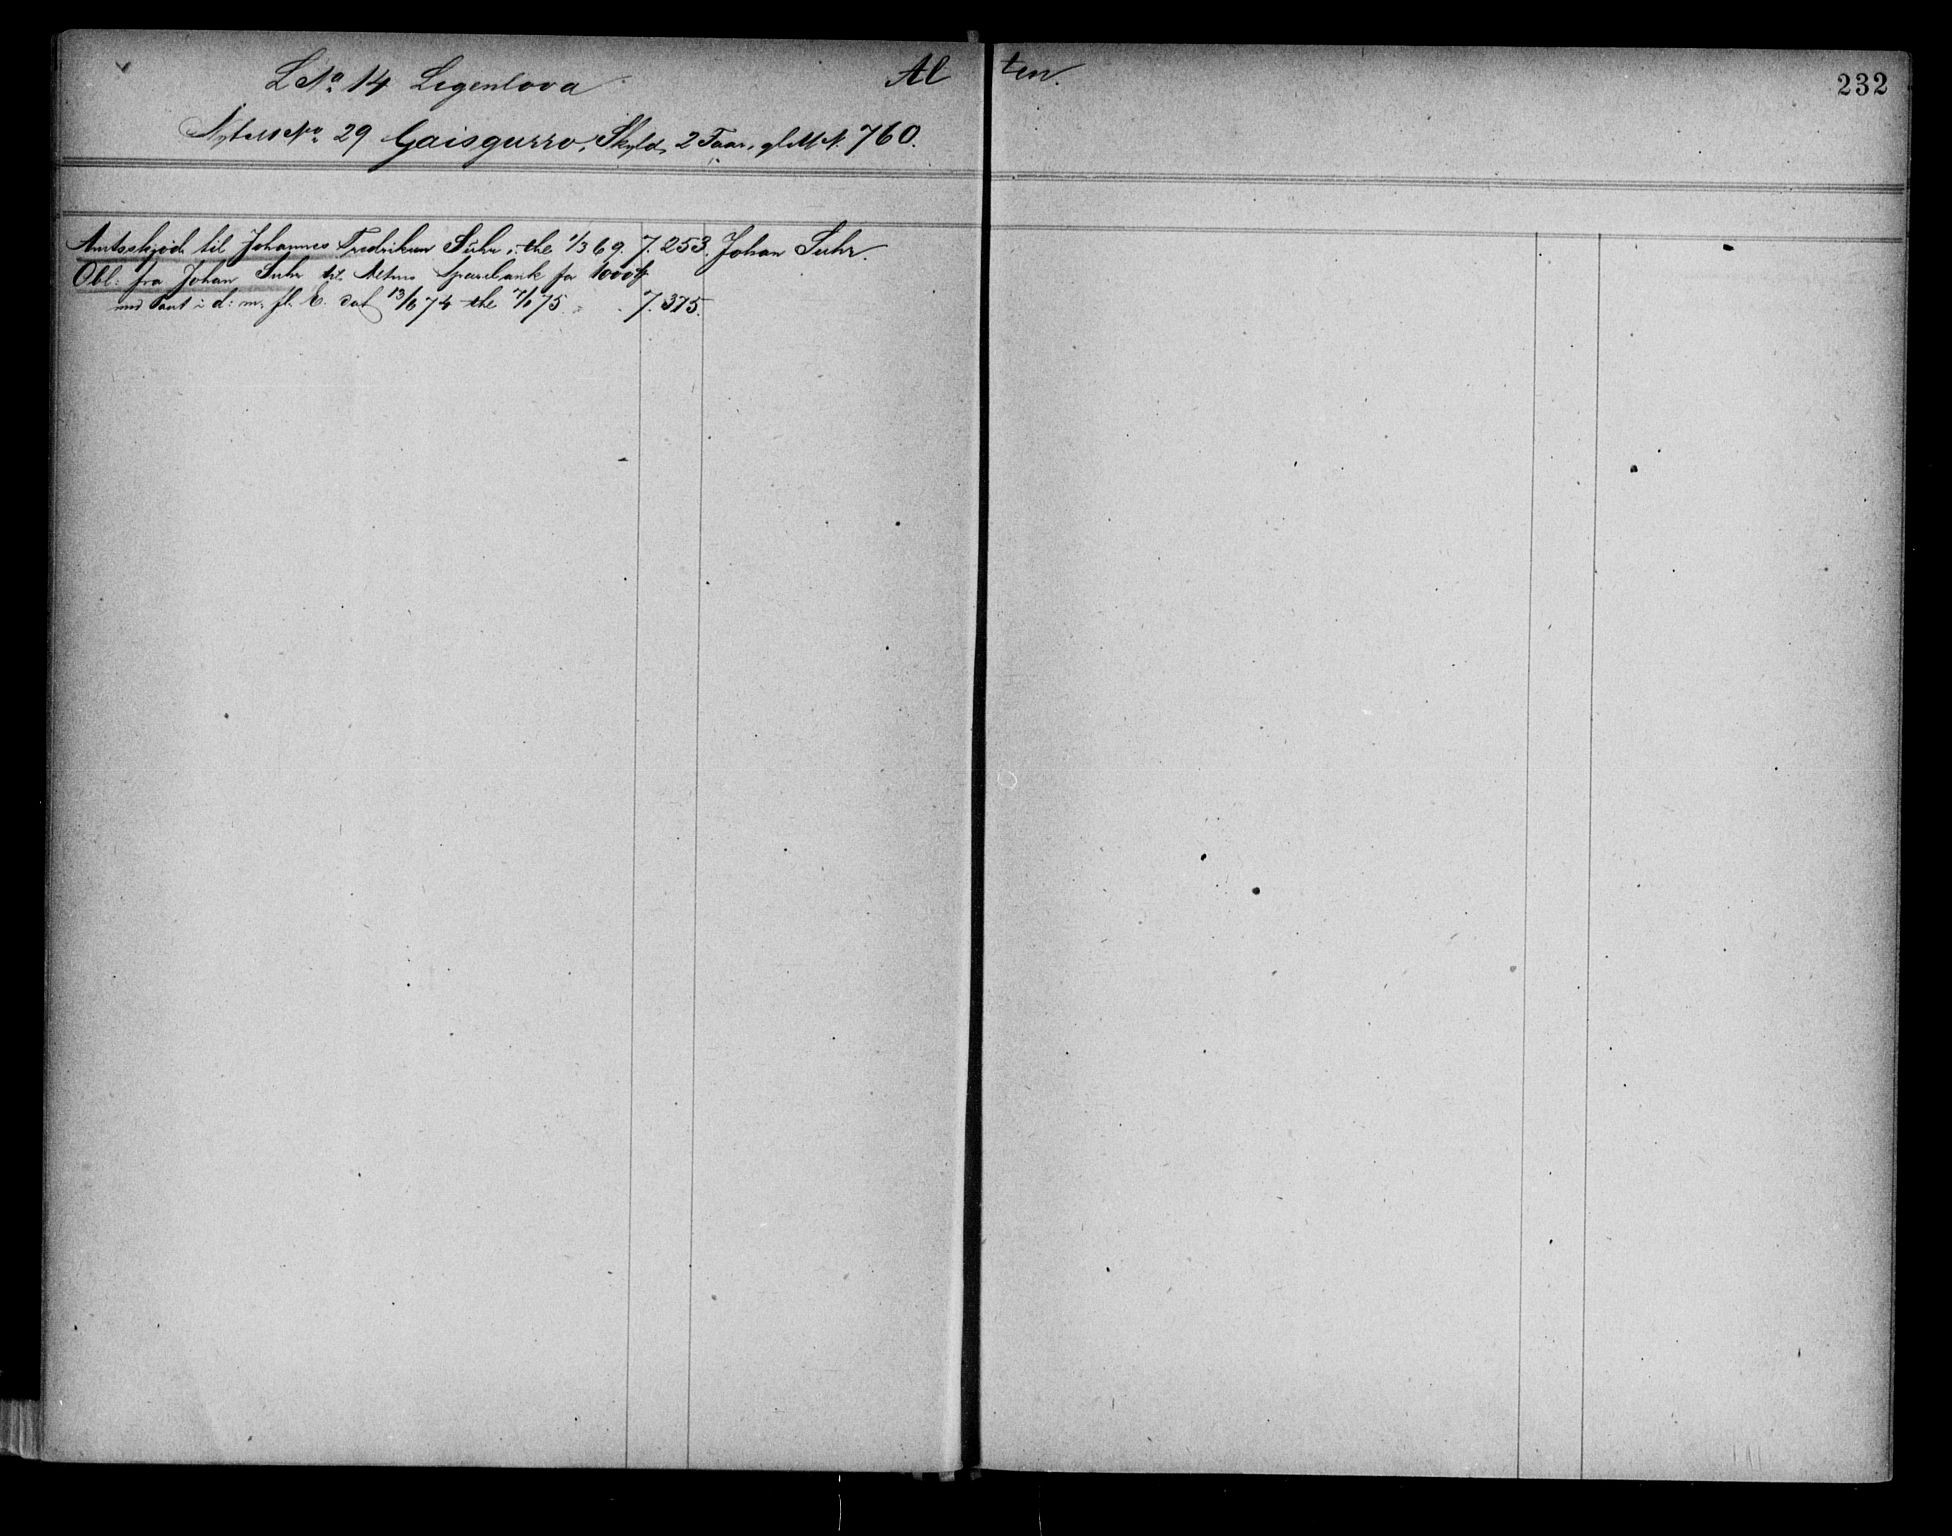 L No 14 Legenlova Alten. 232
No 29 Gaisgurro, Skyld, 2 gl M N. 760.
Amtsskjød til Johannes Fredriksen Suhr, the 1/3 69. 7. 253. Johan Suhr.
Obl: fra Johan Suhr til Altens Sparebank for 1000
med Pant i d: m. fl. E. dat 13/6 74 the 7/1 75. 7. 375.